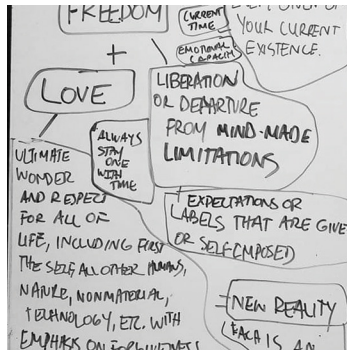 FREEDOM
CURRENT
TIME
EMOTIONAL
CAPACITY
YOUR CURRENT
EXISTENCE.
+
LOVE
LIBERATION
OR DEPARTURE
FROM MIND-MADE
LIMITATIONS
ALWAYS
STAY
ONE
WITH
TIME
ULTIMATE
WONDER
AND RESPECT
FOR ALL OF
LIFE, INCLUDING FIRST
THE SELF, ALL OTHER HUMANS,
NATURE, NONMATERIAL,
TECHNOLOGY, ETC. WITH
EMPHASIS ON FORGIVENESS
+ EXPECTATIONS OR
LABELS THAT ARE GIVE
OR SELF-IMPOSED)
=NEW REALITY
(EACH IS AN